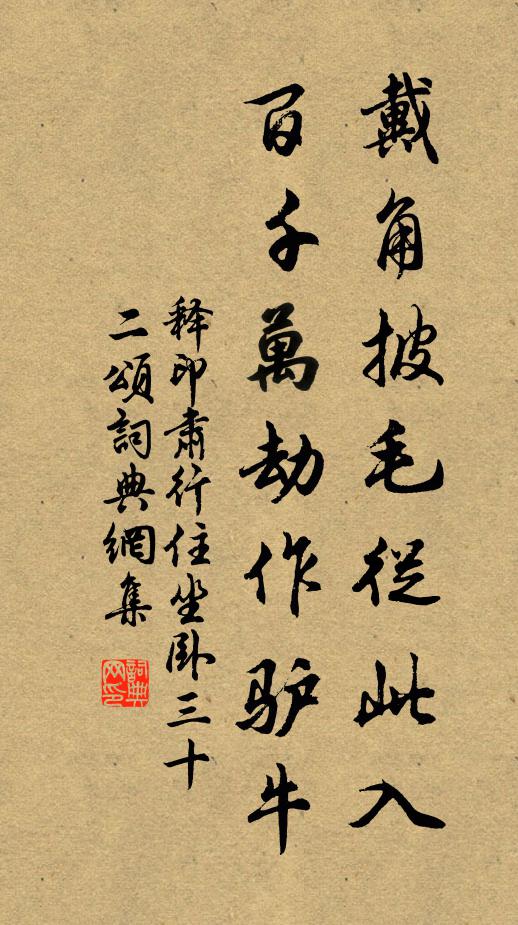 戴角披毛從此入
百千萬劫作驴牛
释印肃行住坐卧三十
二頌詞典網集
詞典网印